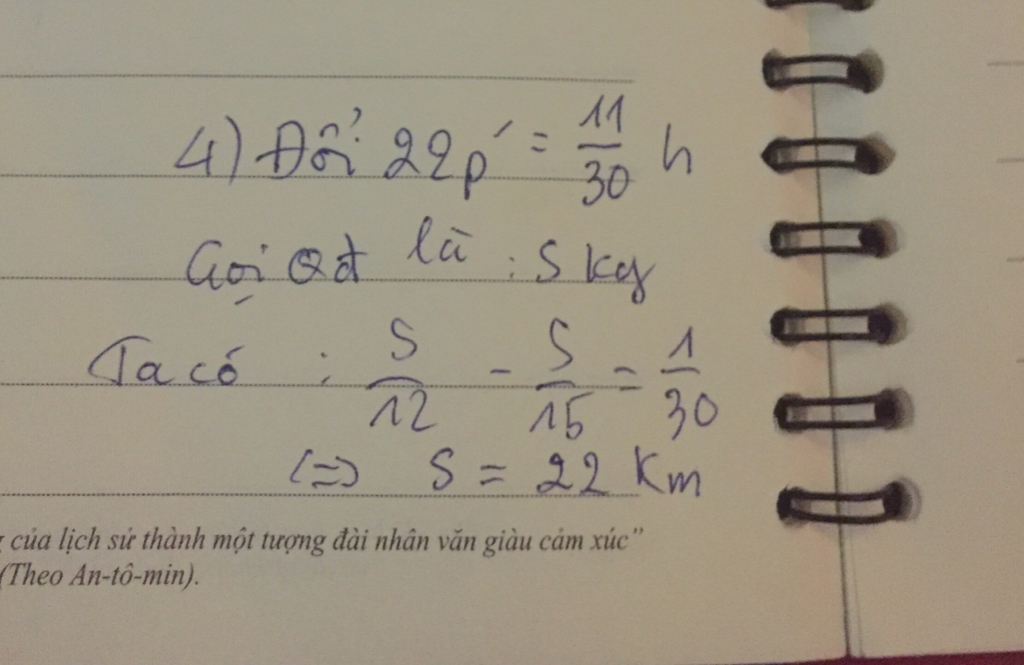 4) Đổi 22p' = 11/30 h
Gọi Qđ là : S kg
Ta có : S/12 - S/15 = 1/30
<=> S = 22 Km
của lịch sử thành một tượng đài nhân văn giàu cảm xúc”
(Theo An-tô-min).